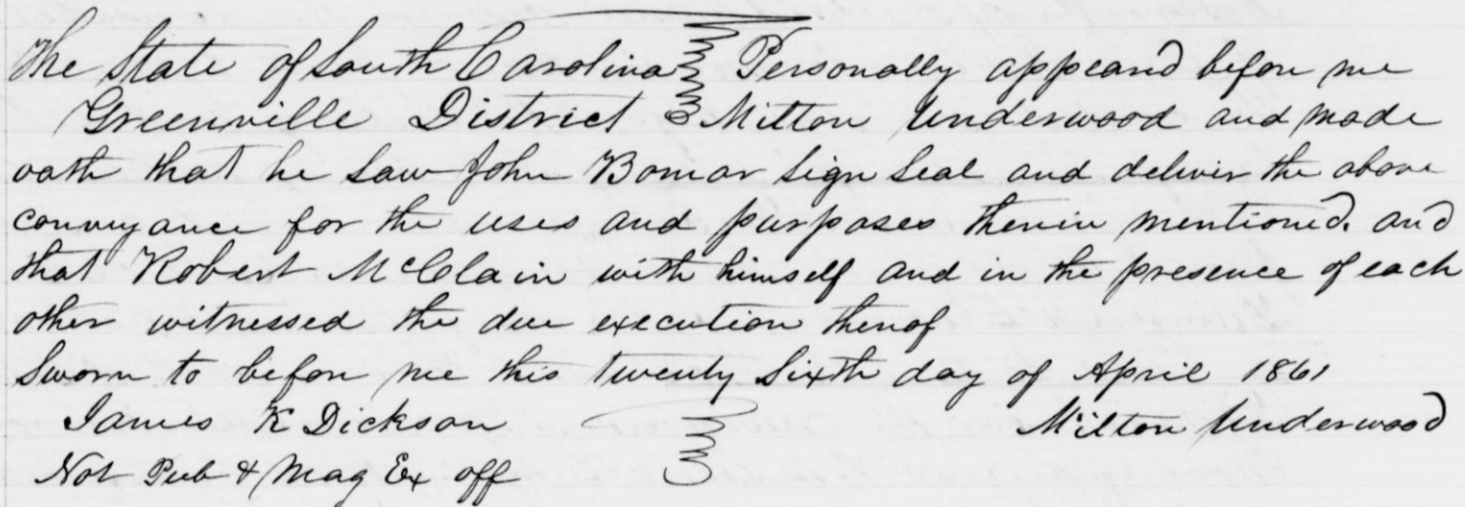 The State of South Carolina } Personally appeard before me
Greenville District } Milton Underwood and made
oath that he saw John Bomar sign seal and deliver the above
conveyance for the uses and purposes therein mentioned. and
that Robert McClain with himself and in the presence of each
other witnessed the due execution thereof
Sworn to before me this twenty sixth day of April 1861
James K Dickson } Milton Underwood
Not Pub & Mag Ex off